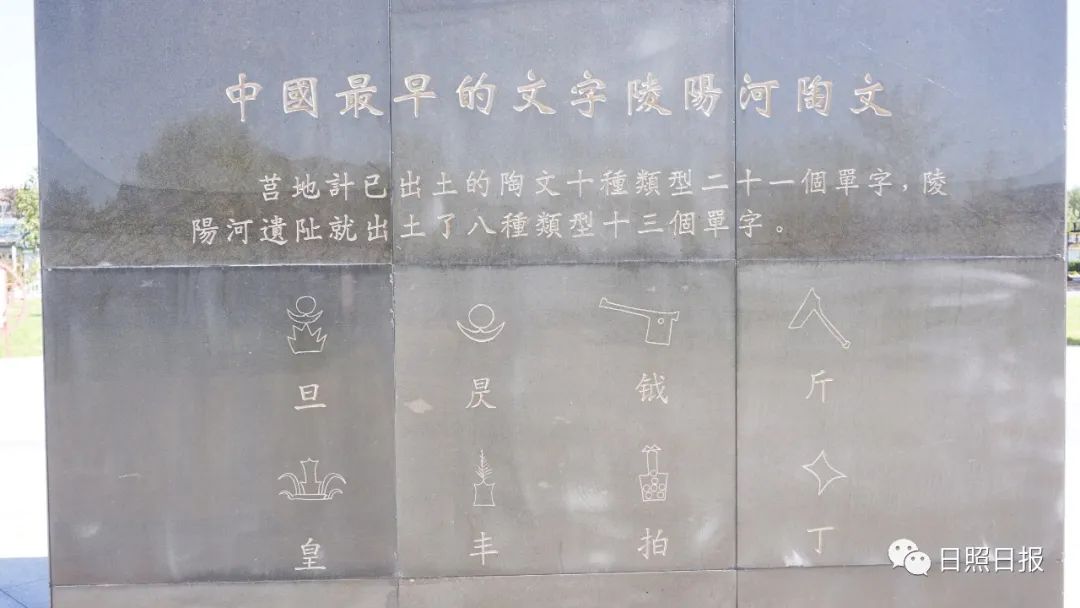 中國最早的文字陵陽河陶文
莒地計已出土的陶文十種類型二十一個單字,陵
陽河遺址就出土了八種類型十三個單字。
旦 炅 钺 斤
皇 丰 拍 丁
日照日报